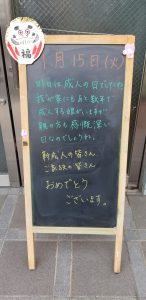 福
1月15日(火)
昨日は成人の日でしたね
我が家にもあと数年で
成人する娘がいますが
親の方も感慨深い
日なのでしょうね。
新成人の皆さん
ご家族の皆さん
おめでとう
ございます。